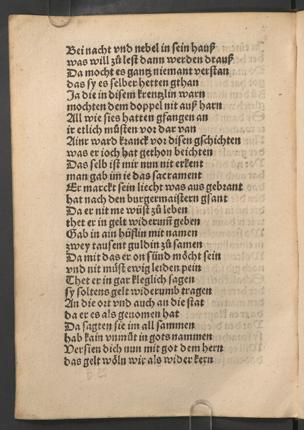 Bei nacht vnd nebel in sein hauß
was will zů lest dann werden drauß
Da mocht es gantz niemant verstan
das sy es selber hetten gthan
ir die in disem krentzlin warn
mochten dem doppel nit auß harn
All wie sies hatten gfangen an
ir etlich můsten vor dar van
Ainr ward kranck vor disen gschichten
was er ioch hat gethon beichten
Das selb ist mir nun nit erkent
man gab im ie das sacrament
Er marckt sein liecht was aus gebrant
hat nach den burgermaistern gsant
Da er nit me wüst zů leben
thet er in gelt widerum̃ geben
Gab in ain hüflin mit namen
zwey tausent guldin zů samen
Da mit das er on sünd möcht sein
vnd nit můst ewig leiden pein
Thet er in gar kleglich sagen
sy soltens gelt widerumb tragen
An die ort vnd auch an die stat
da er es als genomen hat
Da sagten sie im all sammen
hab kain vnmůt in gots nammen
Versien dich nun mit got dem hern
das gelt wöln wir als wider kern